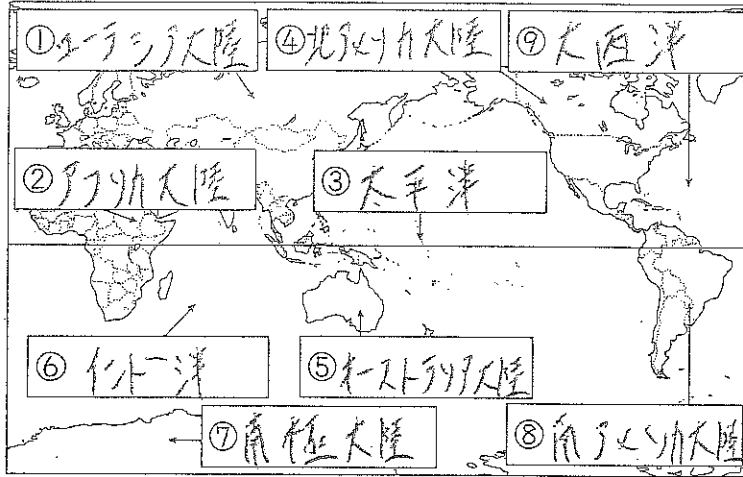 ①ユーラシア大陸
④北アメリカ大陸
⑨大西洋
②アフリカ大陸
③太平洋
⑥インド洋
⑤オーストラリア大陸
⑦南極大陸
⑧南アメリカ大陸